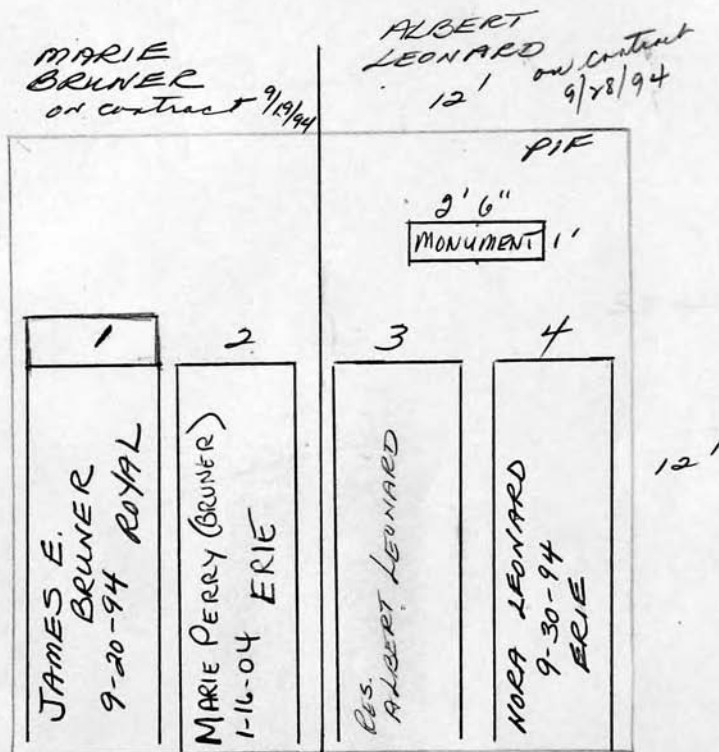 MARIE
BRUNER
on contract 9/19/94
ALBERT
LEONARD
on contract
9/28/94
12'
PIF
2' 6"
MONUMENT 1'
1
2
3
4
12'
JAMES E.
BRUNER
9-20-94 ROYAL
MARIE PERRY (BRUNER)
1-16-04 ERIE
RES.
ALBERT LEONARD
NORA LEONARD
9-30-94
ERIE